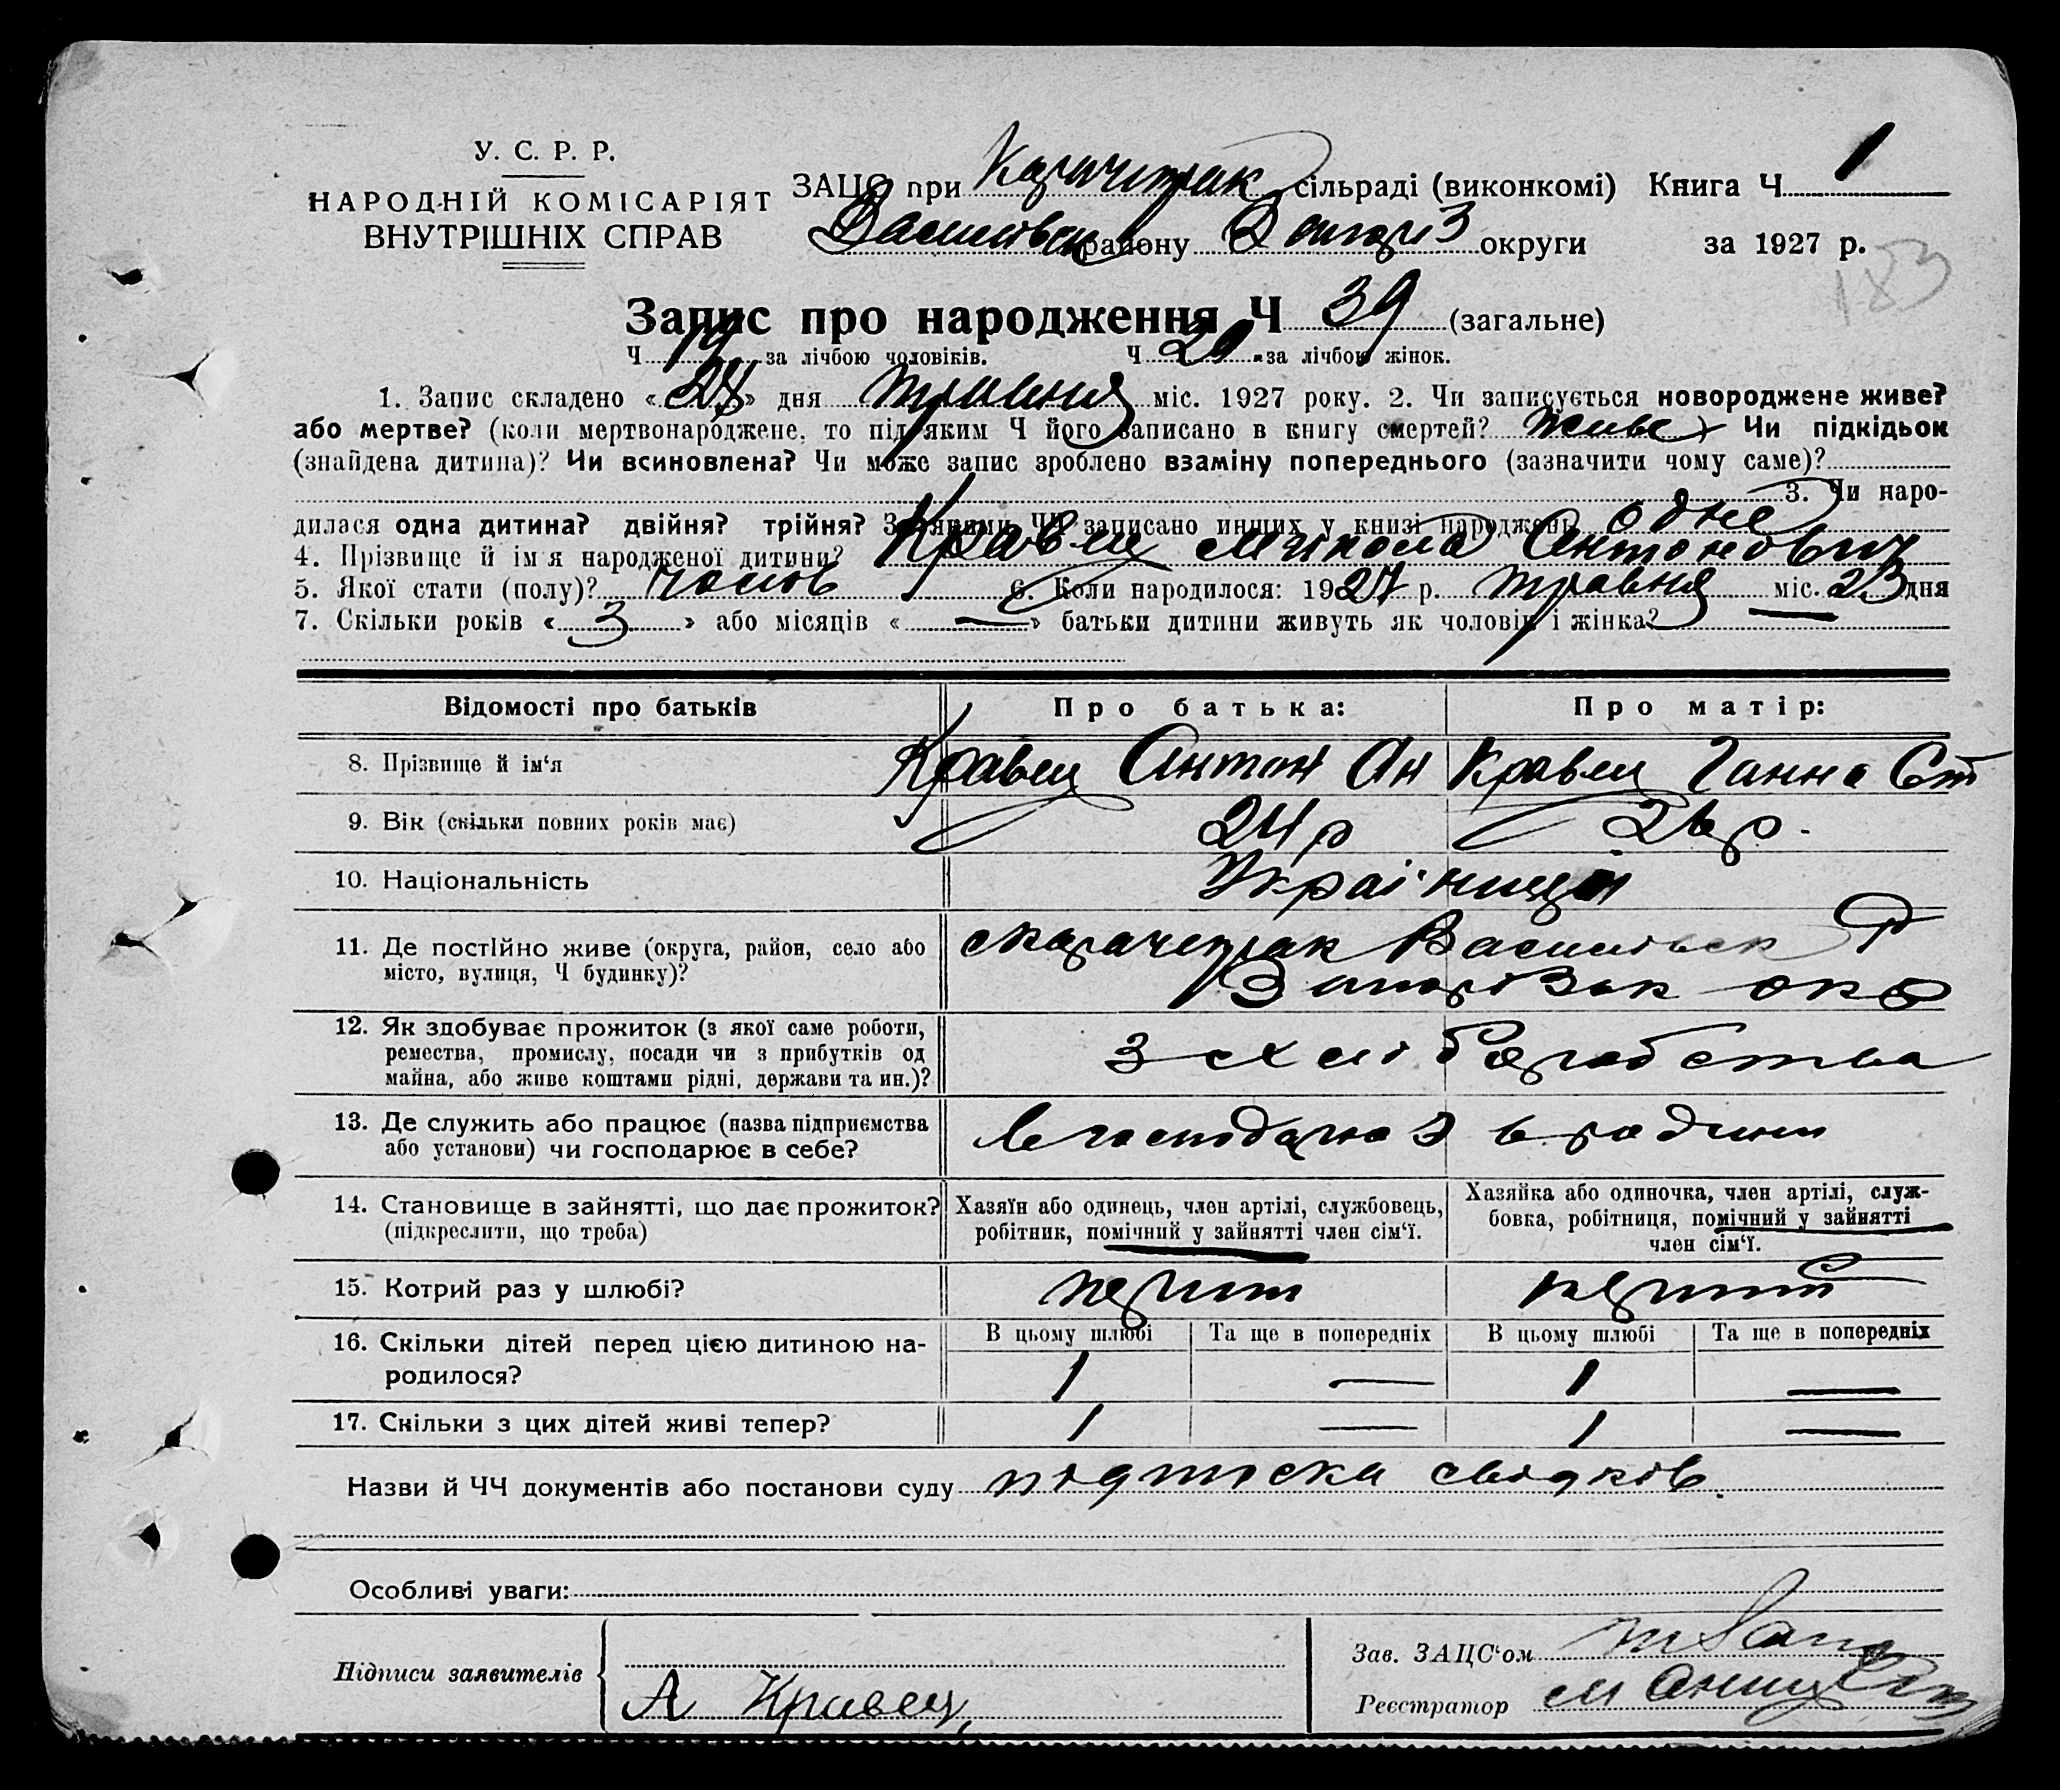 У. С. Р. Р.
НАРОДНІЙ КОМІСАРІЯТ
ВНУТРІШНІХ СПРАВ
ЗАЦС при Карачекрак сільраді (виконкомі) Книга Ч 1
Василівськ району Запоріз округи за 1927 р.
183
Запис про народження Ч 39 (загальне)
Ч 19 за лічбою чоловіків. Ч 20 за лічбою жінок.
1. Запис складено «24» дня травня міс. 1927 року. 2. Чи записується новороджене живе?
або мертве? (коли мертвонароджене, то під яким Ч його записано в книгу смертей? живе) Чи підкідьок
(знайдена дитина)? Чи всиновлена? Чи може запис зроблено взаміну попереднього (зазначити чому саме)?
3. Чи наро-
дилася одна дитина? двійня? трійня? З якими ЧЧ записано инших у книзі народжень одне
4. Прізвище й ім'я народженої дитини? Кравец Микола Антонович
5. Якої стати (полу)? чолов 6. Коли народилося: 1927 р. травня міс. 23 дня
7. Скільки років «3» або місяців «—» батьки дитини живуть як чоловік і жінка? —
Відомості про батьків Про батька: Про матір:
8. Прізвище й ім'я Кравец Антон Ан Кравец Ганна Ст
9. Вік (скільки повних років має) 24 р 26 р.
10. Національність Українци
11. Де постійно живе (округа, район, село або Карачекрак Васильевск Р
місто, вулиця, Ч будинку)? Запорізьк окр
12. Як здобуває прожиток (з якої саме роботи,
ремества, промислу, посади чи з прибутків од з хліборобства
майна, або живе коштами рідні, держави та ин.)?
13. Де служить або працює (назва підприємства
або установи) чи господарює в себе? в родини
14. Становище в зайнятті, що дає прожиток?
(підкреслити, що треба)
Хазяїн або одинець, член артілі, службовець,
робітник, помічний у зайнятті член сім'ї.
Хазяйка або одиночка, член артілі, служ-
бовка, робітниця, помічний у зайнятті
член сім'ї.
15. Котрий раз у шлюбі? перший перший
16. Скільки дітей перед цією дитиною на-
родилося?
В цьому шлюбі Та ще в попередніх В цьому шлюбі Та ще в попередніх
1 — 1 —
17. Скільки з цих дітей живі тепер? 1 — 1 —
Назви й ЧЧ документів або постанови суду підписка свідків.
Особливі уваги:
Підписи заявителів
А Кравец
Зав. ЗАЦС'ом
Реєстратор